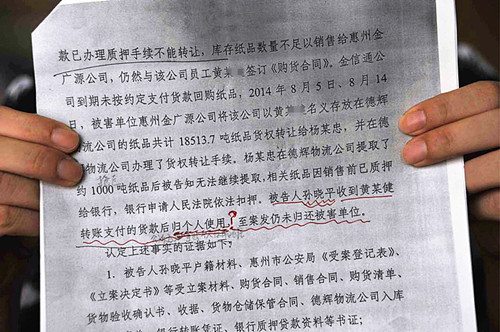 款已办理质押手续不能转让，库存纸品数量不足以销售给惠州金
广源公司，仍然与该公司员工黄某 签订《购货合同》。金信通公
司到期未按约定支付货款回购纸品，2014年8月5日、8月14
日，被害单位惠州金广源公司将该公司以黄 名义存放在德辉
流公司的纸品共计18513.7吨纸品货权转让给杨某忠，并在德
物流公司办理了货权转让手续。杨某忠在德辉物流公司提取了
约1000吨纸品后被告知无法继续提取，相关纸品因销售前已质押
给银行，银行申请人民法院依法扣押。被告人孙晓平收到黄某健
转账支付的货款后归个人使用？至案发仍未归还被害单位。
认定上述事实的证据如下：
1、被告人孙晓平户籍材料、惠州市公安局《受案登记表》、
《立案决定书》等受立案材料、购货合同、销售合同、购货清单、
货物验收确认书、收据、货物仓储保管合同、德辉物流公司入库
银行转账凭证、银行质押贷款资料等书证；